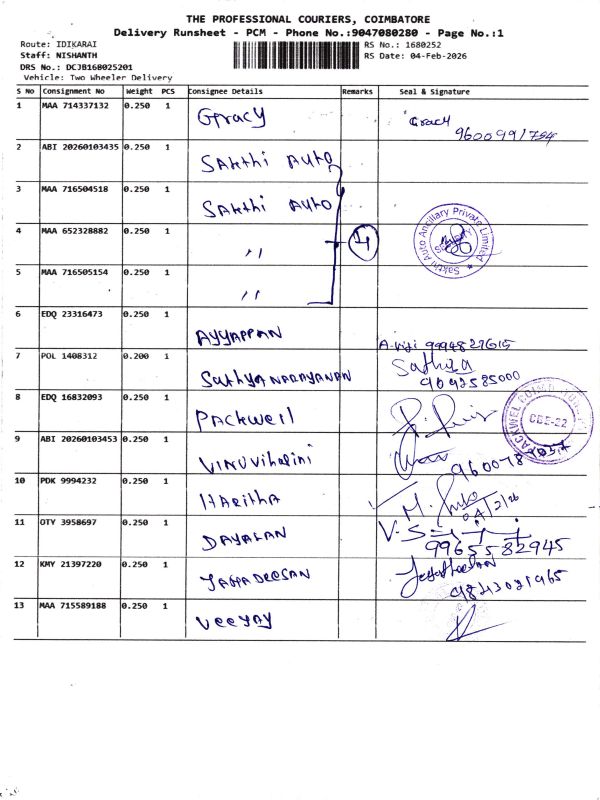 THE PROFESSIONAL COURIERS, COIMBATORE
Delivery Runsheet - PCM - Phone No.:9047080280 - Page No.:1
Route: IDIKARAI
RS No.: 1680252
Staff: NISHANTH
RS Date: 04-Feb-2026
DRS No.: DCJB168025201
Vehicle: Two Wheeler Delivery
S No Consignment No Weight PCS Consignee Details Remarks Seal & Signature
1 MAA 714337132 0.250 1 Gracy Gracy
2 ABI 20260103435 0.250 1 Sakthi Auto
3 MAA 716504518 0.250 1 Sakthi Auto
4 MAA 652328882 0.250 1 ,, 4 Sakthi Auto Ancillary Private Limited
5 MAA 716505154 0.250 1 ,,
6 EDQ 23316473 0.250 1 AYYAPPAN 9994827615
7 POL 1408312 0.200 1 Sathya NARAYANAN Sathya 9092585000
8 EDQ 16832093 0.250 1 PACKWELL CBE-22
9 ABI 20260103453 0.250 1
10 PDK 9994232 0.250 1 HARITHA
11 OTY 3958697 0.250 1 DAYALAN 9965582945
12 KMY 21397220 0.250 1 JAGADEESAN
13 MAA 715589188 0.250 1 VEEJAY